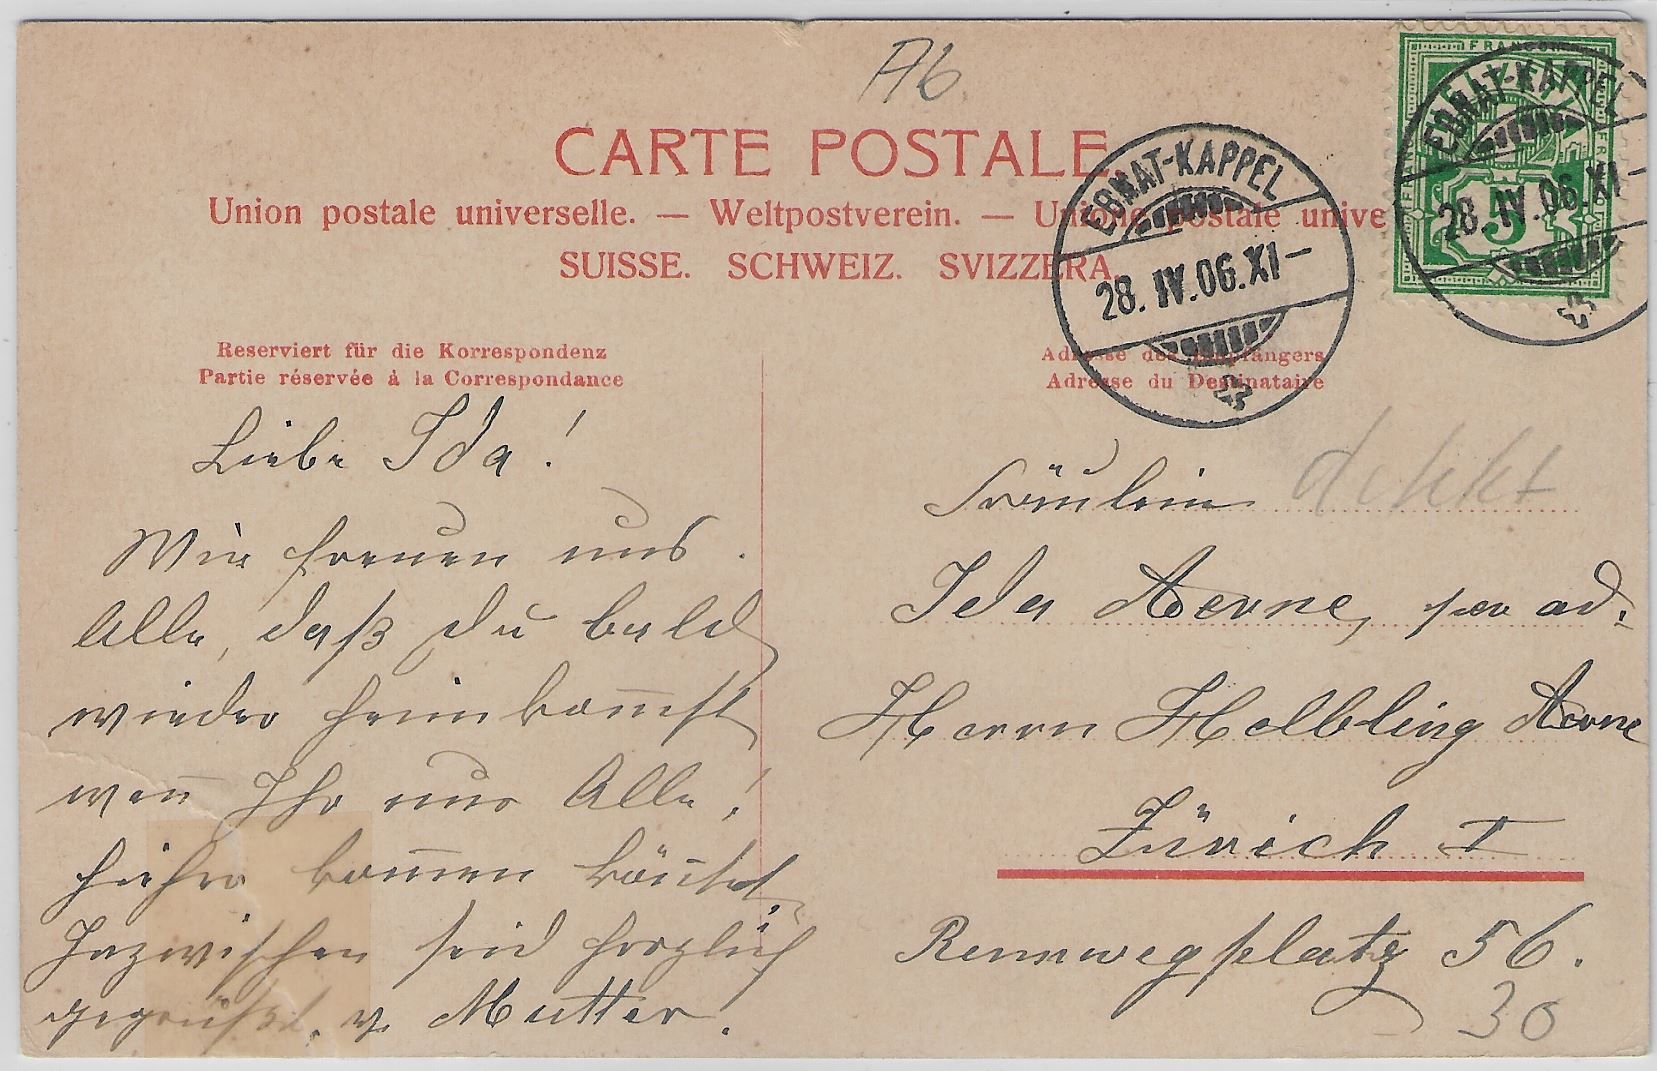 A6
CARTE POSTALE.
Union postale universelle. — Weltpostverein. — Unione postale unive
SUISSE. SCHWEIZ. SVIZZERA.
FRANCO
5
EBNAT-KAPPEL
28. IV. 06. XI –
EBNAT-KAPPEL
28. IV. 06. XI –
Reserviert für die Korrespondenz
Partie réservée à la Correspondance
Liebe Ida!
Wir freuen uns
Alle, daß du bald
wieder heimkom̅st
wen̅ Ihr nur Alle!
hieher kom̅en kön̅tet,
Inzwischen seid herzlich
gegrüßt. v. Mutter!
Adresse des Empfängers
Adresse du Destinataire
Fräulein
defekt
Ida Aerne, per ad.
Herrn Helbling Aerne
Zürich I
Rennwegplatz 56.
30